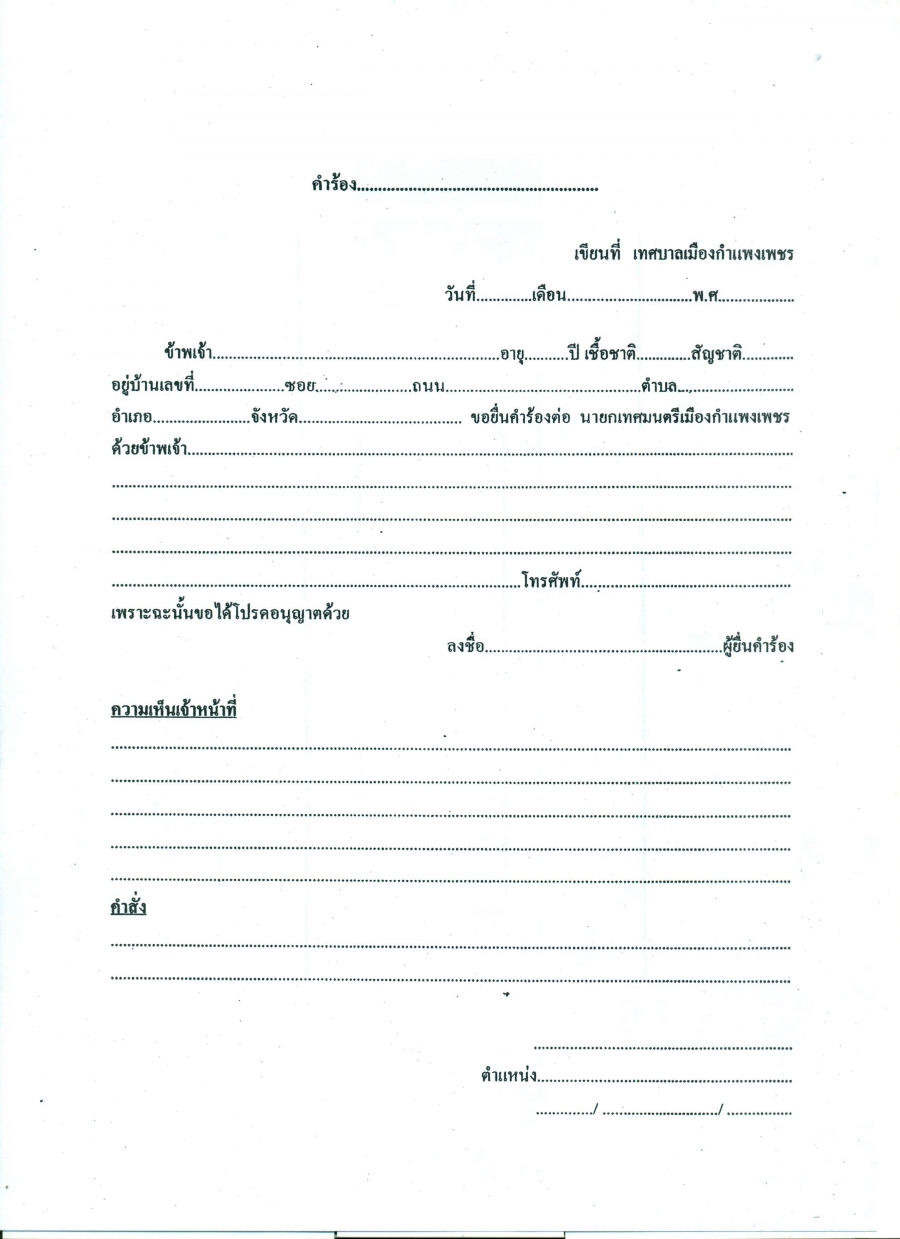 คำร้อง........................................................
เขียนที่ เทศบาลเมืองกำแพงเพชร
วันที่..............เดือน................................พ.ศ...................
ข้าพเจ้า........................................................................อายุ...........ปี เชื้อชาติ..............สัญชาติ.............
อยู่บ้านเลขที่.......................ซอย.........................ถนน..................................................ตำบล..............................
อำเภอ.........................จังหวัด.......................................... ขอยื่นคำร้องต่อ นายกเทศมนตรีเมืองกำแพงเพชร
ด้วยข้าพเจ้า..........................................................................................................................................
................................................................................................................................................
................................................................................................................................................
................................................................................................................................................
........................................................................................โทรศัพท์......................................................
เพราะฉะนั้นขอได้โปรดอนุญาตด้วย
ลงชื่อ.............................................................ผู้ยื่นคำร้อง
ความเห็นเจ้าหน้าที่
................................................................................................................................................
................................................................................................................................................
................................................................................................................................................
................................................................................................................................................
................................................................................................................................................
คำสั่ง
................................................................................................................................................
................................................................................................................................................
..................................................................
ตำแหน่ง.................................................................
............../ ............................./ ................